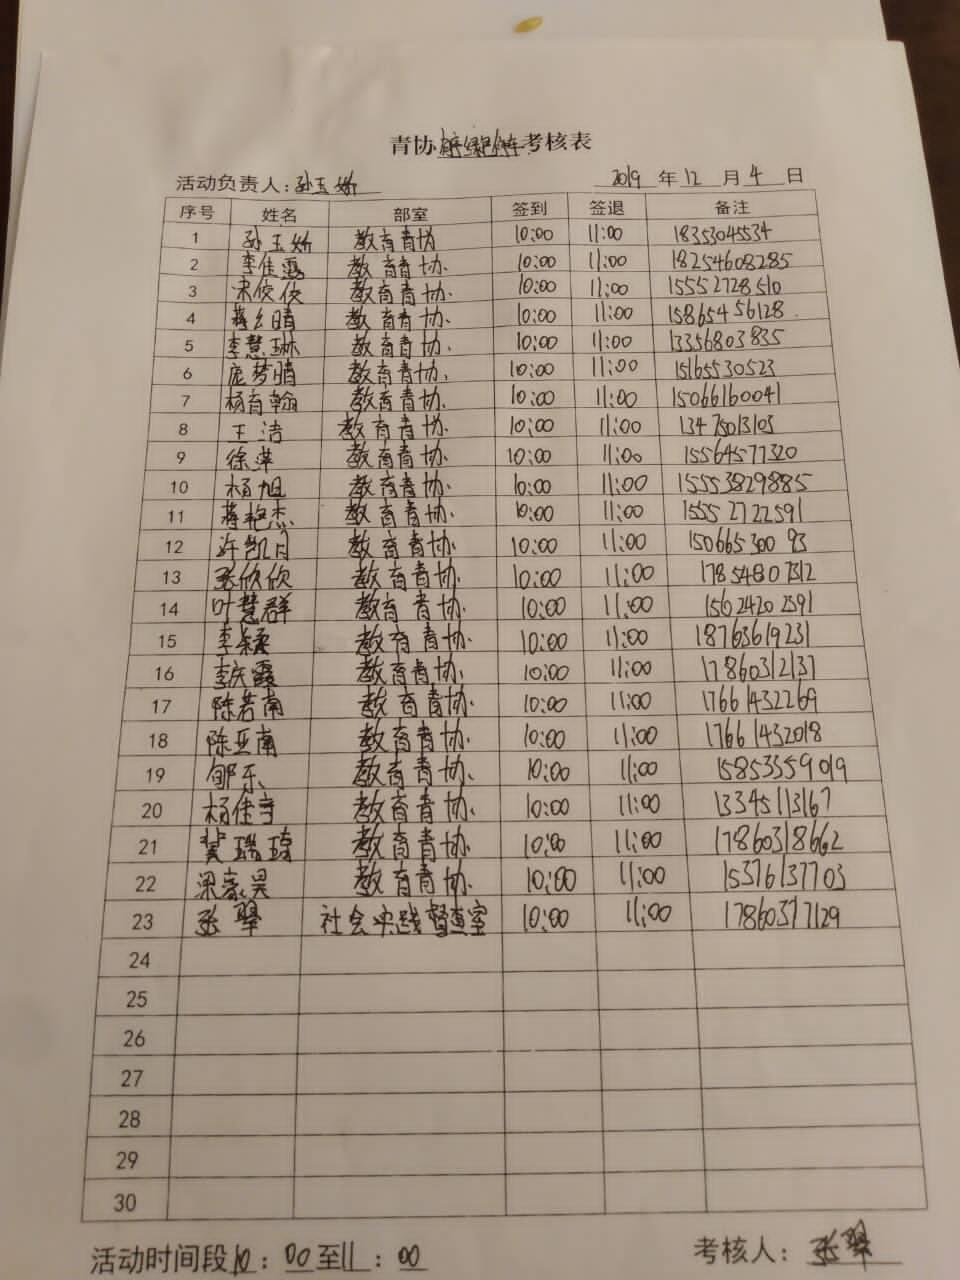 青协 考核表
活动负责人:孙玉娇 2019年12月4日
序号 姓名 部室 签到 签退 备注
1 孙玉娇 教育青协 10:00 11:00 18353045534
2 李佳露 教育青协. 10:00 11:00 18254608285
3 宋俊俊 教育青协. 10:00 11:00 15552728510
4 蒋 晴 教育青协. 10:00 11:00 15865456128.
5 李慧琳 教育青协. 10:00 11:00 13356803835
6 庞梦晴 教育青协. 10:00 11:00 15165530523
7 杨育翰 教育青协. 10:00 11:00 15066160041
8 王洁 教育青协. 10:00 11:00 13475013103
9 徐萍 教育青协. 10:00 11:00 15564577320
10 杨旭 教育青协. 10:00 11:00 15553829885
11 蒋艳杰 教育青协. 10:00 11:00 15552722591
12 许凯月 教育青协. 10:00 11:00 150665300 93
13 张欣欣 教育青协. 10:00 11:00 17854807312
14 叶慧群 教育青协. 10:00 11:00 15624202591
15 李 教育青协. 10:00 11:00 18763619231
16 李庆霞 教育青协. 10:00 11:00 17860312137
17 陈若南 教育青协. 10:00 11:00 17661432269
18 陈亚南 教育青协. 10:00 11:00 17661432018
19 郇乐 教育青协. 10:00 11:00 15853359019
20 杨佳宇 教育青协. 10:00 11:00 13345113167
21 瑞琦 教育青协. 10:00 11:00 17860318662
22 梁豪昊 教育青协. 10:00 11:00 15376137703
23 张翠 社会实践督查室 10:00 11:00 17860317129
24
25
26
27
28
29
30
活动时间段10:00至11:00 考核人:张翠